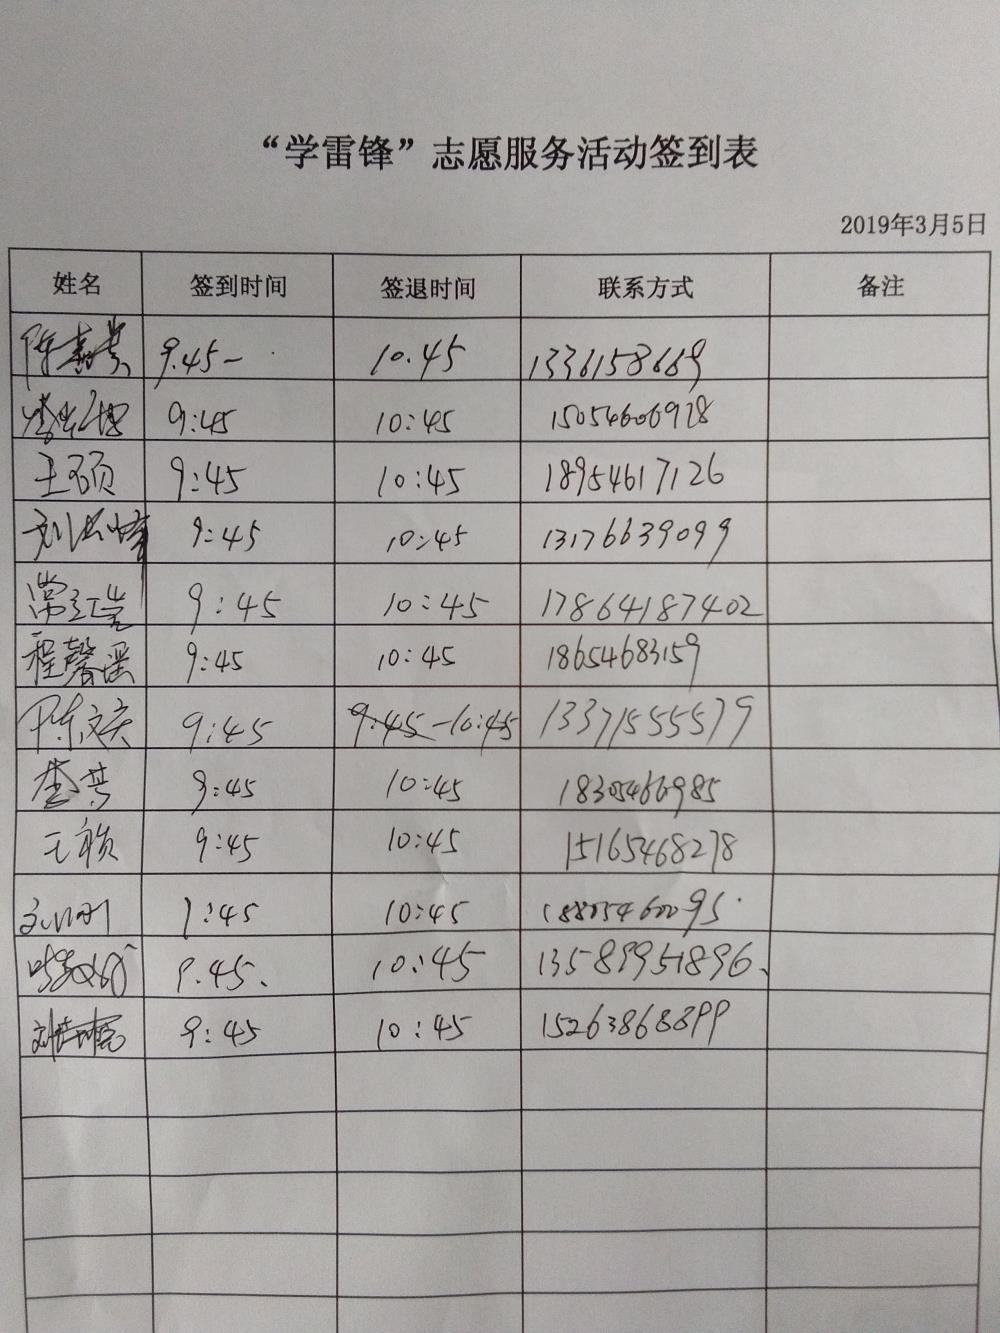 “学雷锋”志愿服务活动签到表
2019年3月5日
姓名 签到时间 签退时间 联系方式 备注
9.45- 10.45 1336158669
9:45 10:45 15054606928
王硕 9:45 10:45 18954617126
9:45 10:45 13176639099
常红岩 9:45 10:45 17864187402
程馨遥 9:45 10:45 18654683159
9:45 9:45-10:45 13371555579
李芸 9:45 10:45 18305466985
王颖 9:45 10:45 15165468278
9:45 10:45 18805460095
9.45. 10:45 13589951896
9:45 10:45 15263868899